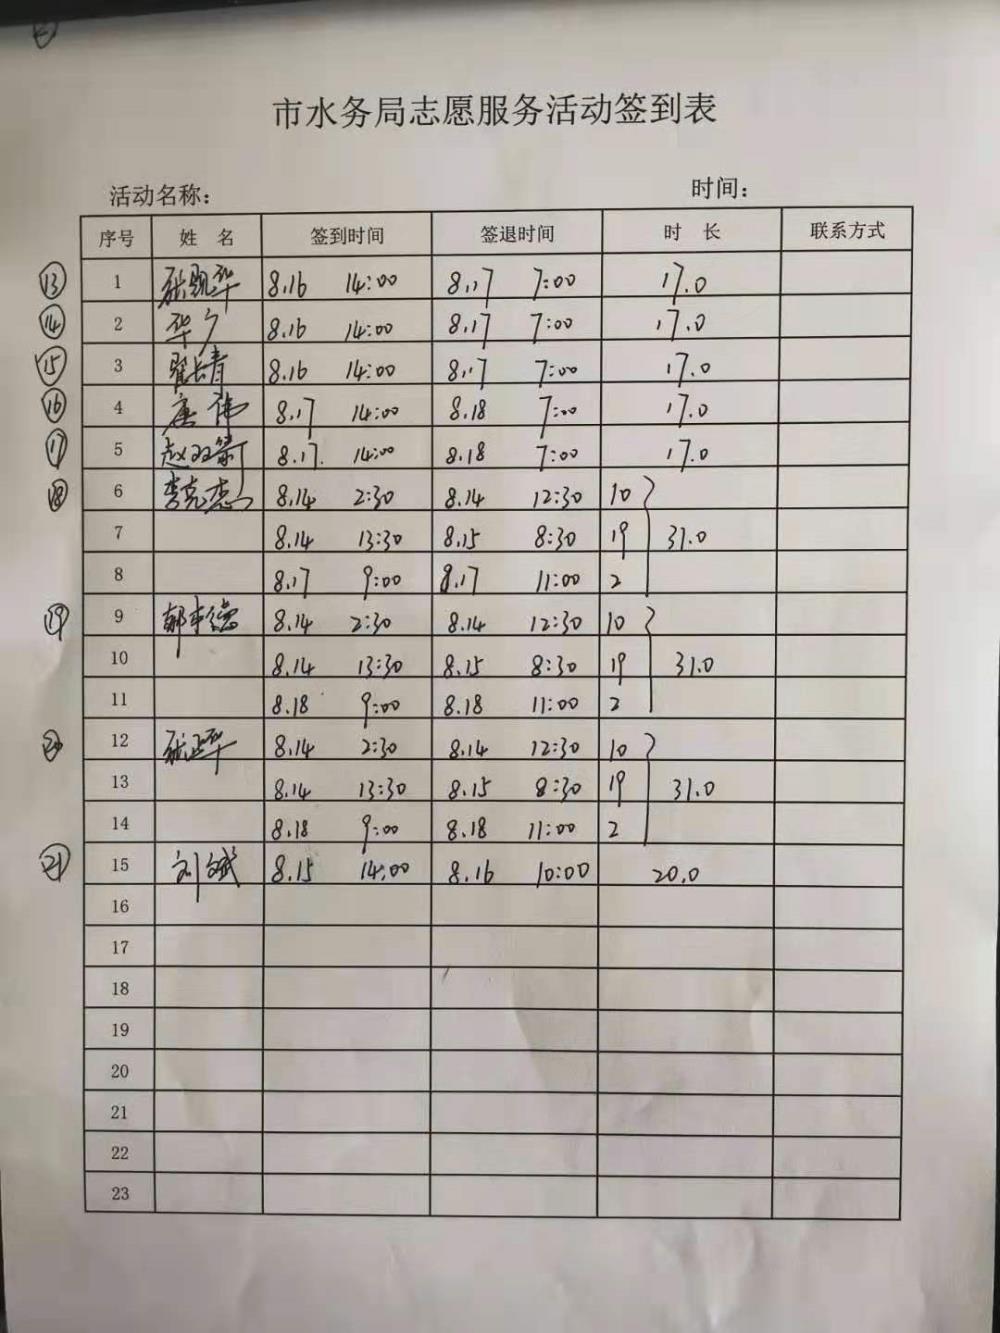 ②
市水务局志愿服务活动签到表
活动名称： 时间：
序号 姓 名 签到时间 签退时间 时 长 联系方式
⑬ 1 张凯华 8.16 14:00 8.17 7:00 17.0
⑭ 2 华 8.16 14:00 8.17 7:00 17.0
⑮ 3 翟长青 8.16 14:00 8.17 7:00 17.0
⑯ 4 唐伟 8.17 14:00 8.18 7:00 17.0
⑰ 5 赵双 8.17. 14:00 8.18 7:00 17.0
⑱ 6 李克杰 8.14 2:30 8.14 12:30 10
7 8.14 13:30 8.15 8:30 19 31.0
8 8.17 9:00 8.17 11:00 2
⑲ 9 德 8.14 2:30 8.14 12:30 10
10 8.14 13:30 8.15 8:30 19 31.0
11 8.18 9:00 8.18 11:00 2
⑳ 12 张正华 8.14 2:30 8.14 12:30 10
13 8.14 13:30 8.15 8:30 19 31.0
14 8.18 9:00 8.18 11:00 2
㉑ 15 刘斌 8.15 14:00 8.16 10:00 20.0
16
17
18
19
20
21
22
23